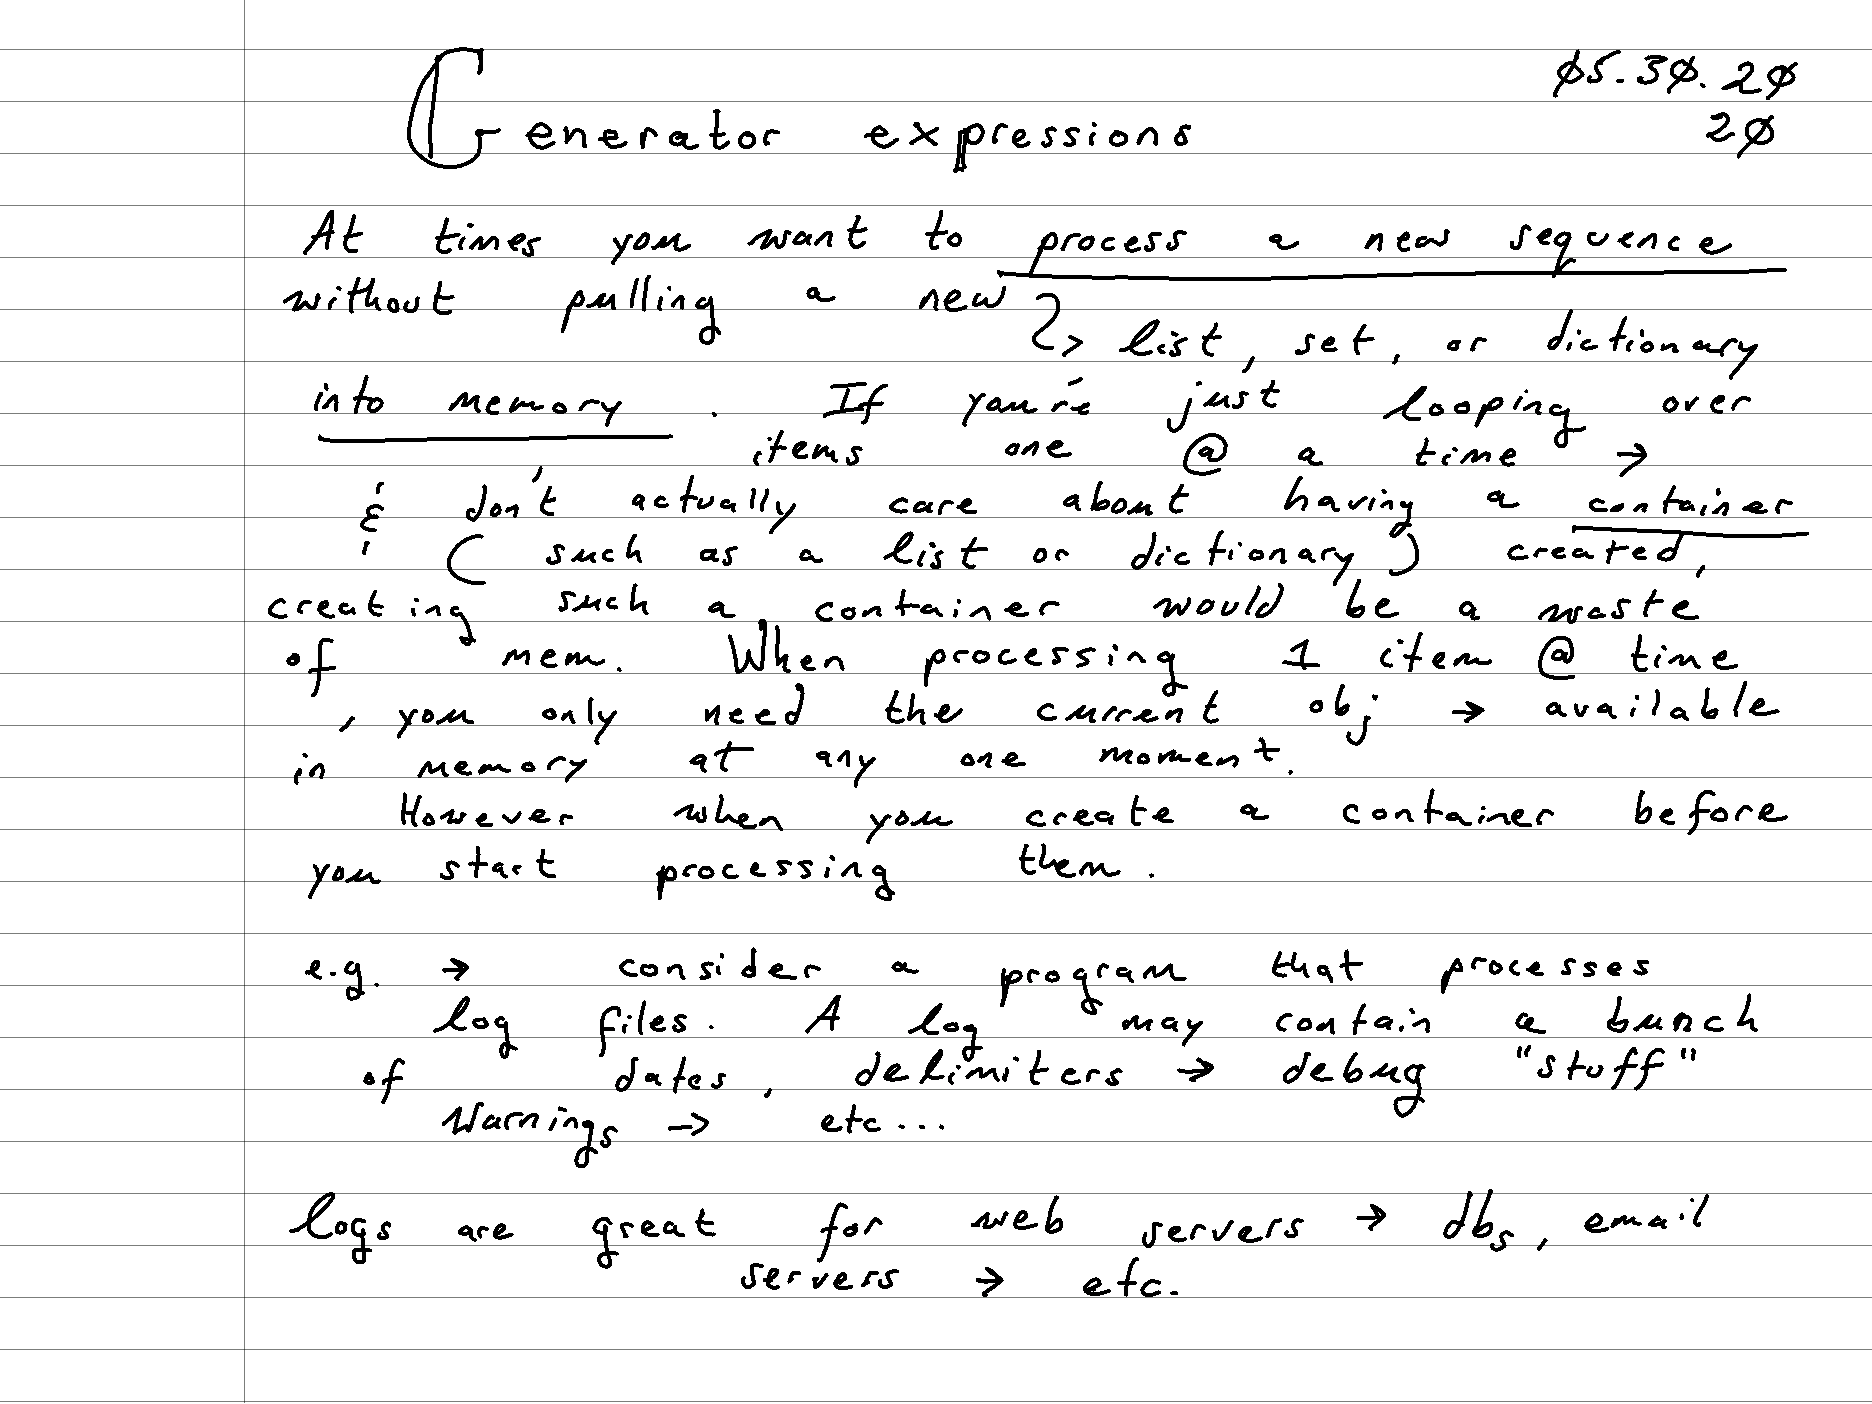 Generator expressions
05.30.20
20
At times you want to process a new sequence
without pulling a new
→ list, set, or dictionary
into memory. If you're just looping over
items one @ a time →
& don't actually care about having a container
(such as a list or dictionary) created,
creating such a container would be a waste
of mem. When processing 1 item @ time
, you only need the current obj → available
in memory at any one moment.
However when you create a container before
you start processing them.
e.g. → consider a program that processes
log files. A log may contain a bunch
of dates, delimiters → debug "stuff"
Warnings → etc...
logs are great for web servers → dbs, email
servers → etc.